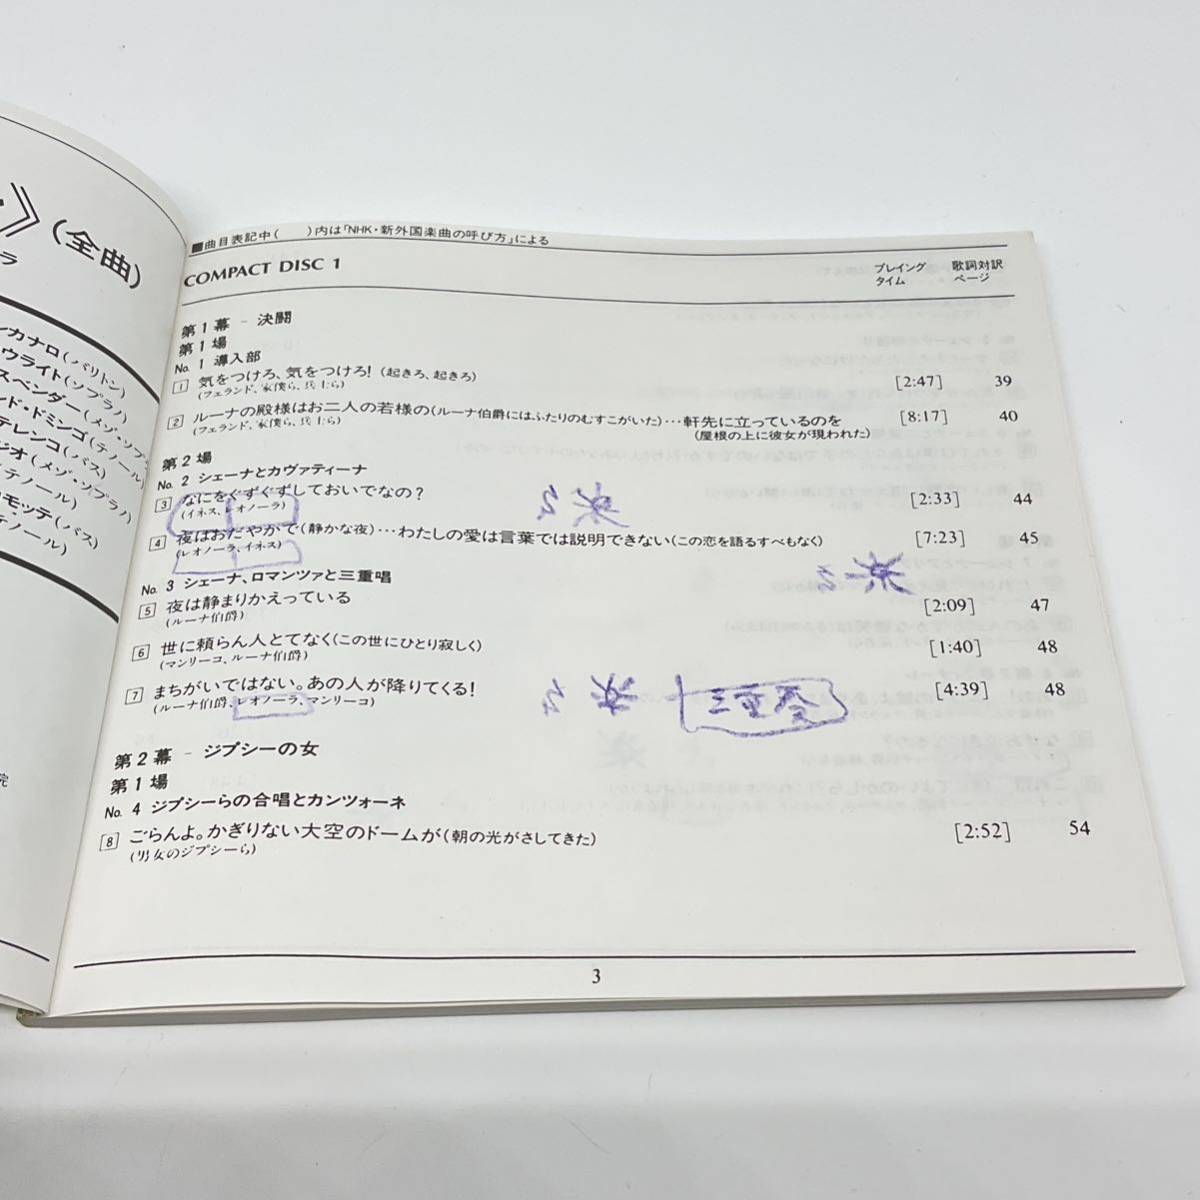 ・》(全曲)
ラ
ンカナロ(バリトン)
ウライト(ソプラノ)
スペンダー(メゾ・ソプラ
ード・ドミンゴ(テノール)
テレンコ(バス)
ジオ(メゾ・ソプラノ)
(テノール)
ロモッテ(バス)
テノール)
院
■曲目表記中(　　)内は「NHK・新外国楽曲の呼び方」による
COMPACT DISC 1
プレイングタイム
歌詞対訳ページ
第1幕 - 決闘
第1場
No. 1 導入部
1 気をつけろ、気をつけろ! (起きろ、起きろ) [2:47] 39
(フェランド、家僕ら、兵士ら)
2 ルーナの殿様はお二人の若様の(ルーナ伯爵にはふたりのむすこがいた)…軒先に立っているのを [8:17] 40
(フェランド、家僕ら、兵士ら) (屋根の上に彼女が現われた)
第2場
No. 2 シェーナとカヴァティーナ
3 なにをぐずぐずしておいでなの? [2:33] 44
(イネス、レオノーラ)
4 夜はおだやかで(静かな夜)…わたしの愛は言葉では説明できない(この恋を語るすべもなく) [7:23] 45
(レオノーラ、イネス)
No. 3 シェーナ、ロマンツァと三重唱
5 夜は静まりかえっている [2:09] 47
(ルーナ伯爵)
6 世に頼らん人とてなく(この世にひとり寂しく) [1:40] 48
(マンリーコ、ルーナ伯爵)
7 まちがいではない。あの人が降りてくる! [4:39] 48
(ルーナ伯爵、レオノーラ、マンリーコ)
三重
第2幕 - ジプシーの女
第1場
No. 4 ジプシーらの合唱とカンツォーネ
8 ごらんよ。かぎりない大空のドームが(朝の光がさしてきた) [2:52] 54
(男女のジプシーら)
3